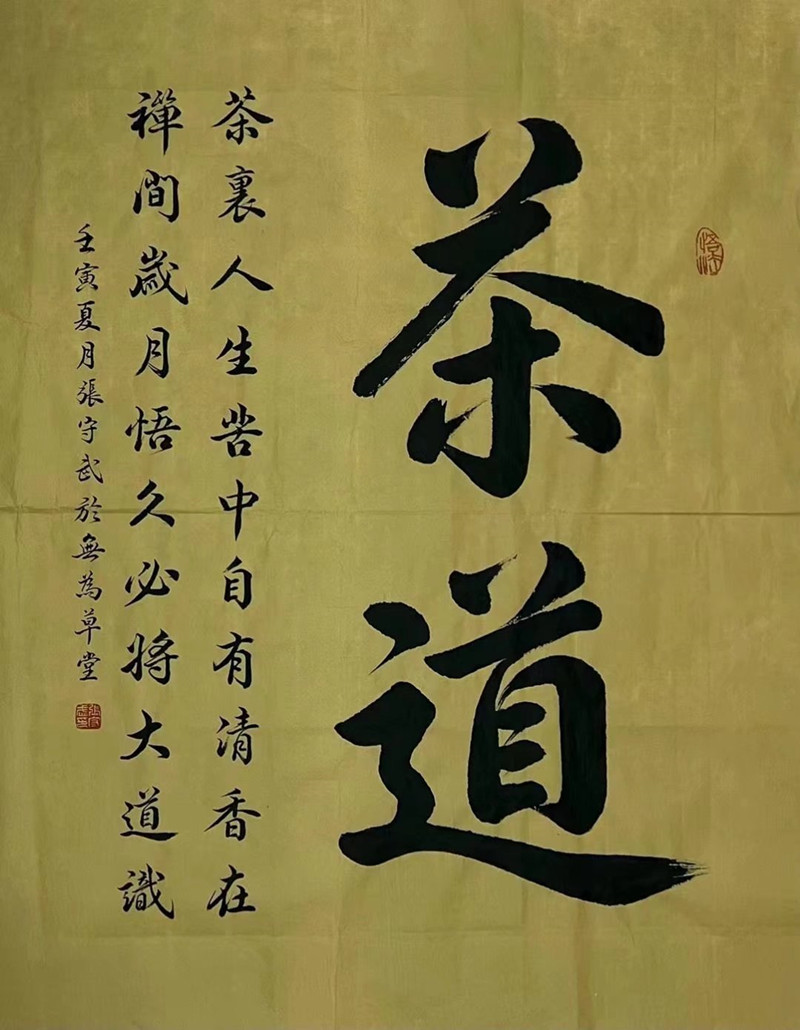 茶道
茶裏人生苦中自有清香在
禪間歲月悟久必將大道識
壬寅夏月張守武於無為草堂